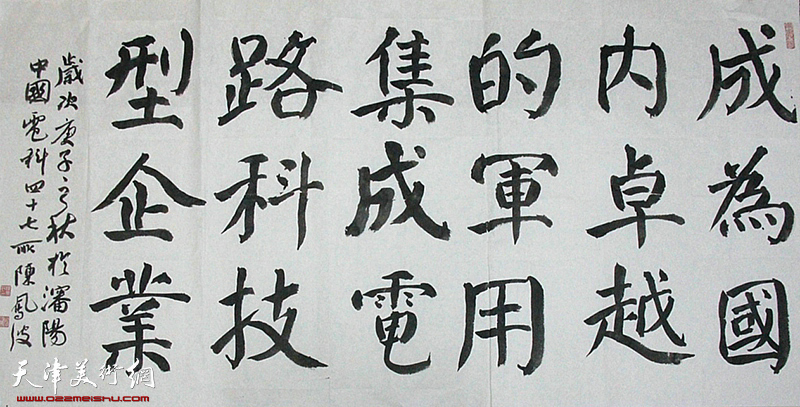 成為國
内卓越
的軍用
集成電
路科技
型企業
歲次庚子之秋於瀋陽
中國電科四十七所陳鳳波
天津美術網
www.022meishu.com